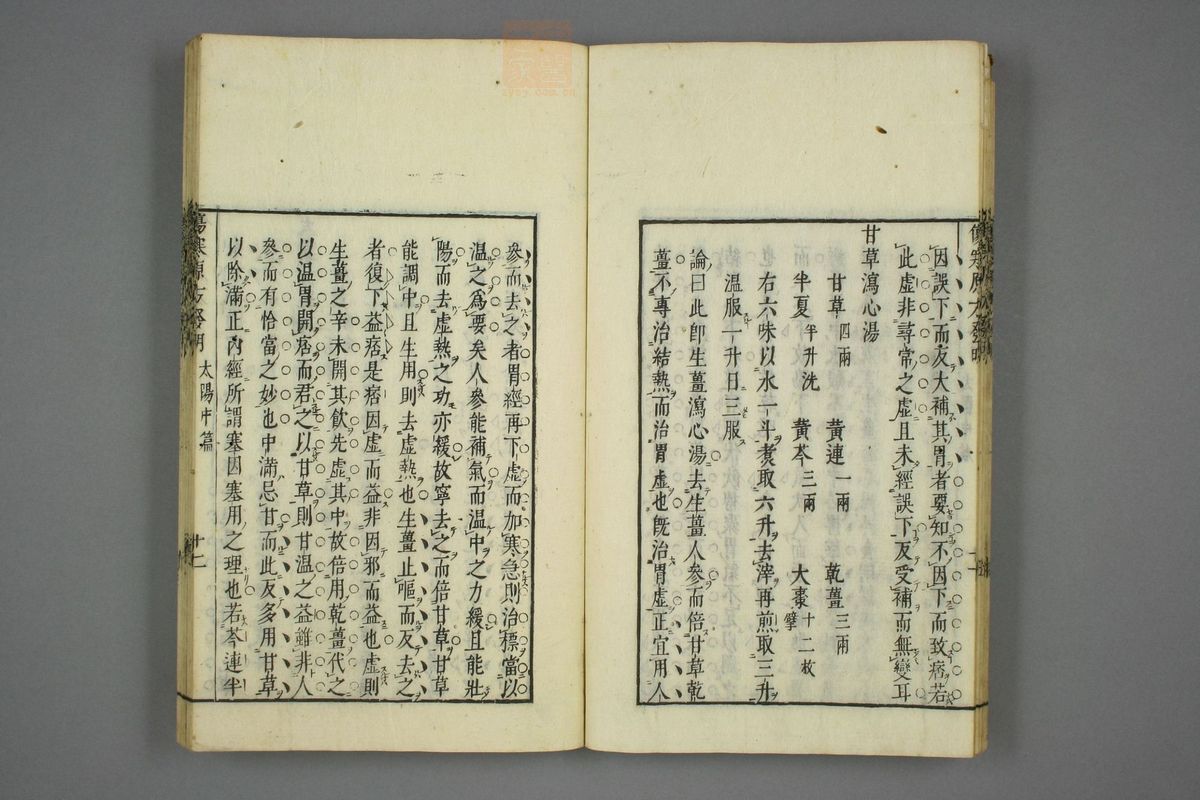 因誤下而反大補其胃者要知不因下而致痞若
此虛非尋常之虛且未經誤下反受補而無變耳
甘草瀉心湯
甘草四兩 黃連一兩 乾薑三兩
半夏半升洗 黃芩三兩 大棗十二枚擘
右六味以水一斗煮取六升去滓再煎取三升
溫服一升日三服
論曰此即生薑瀉心湯去生薑人參而倍甘草乾
薑不專治結熱而治胃虛也既治胃虛正宜用人
參而去之者胃經再下虛而加寒急則治標當以
溫之為要矣人參能補氣而溫中之力緩且能壯
陽而去虛熱之功亦緩故寧去之而倍甘草甘草
能調中且生用則去虛熱也生薑止嘔而反去之
者復下益痞是痞因虛而益非因邪而益也虛則
生薑之辛未開其飲先虛其中故倍用乾薑代之
以溫胃開痞而君之以甘草則甘溫之益雖非人
參而有恰當之妙也中滿忌甘而此反多用甘草
以除滿正內經所謂塞因塞用之理也若芩連半
傷寒原方發明 太陽中篇 十二